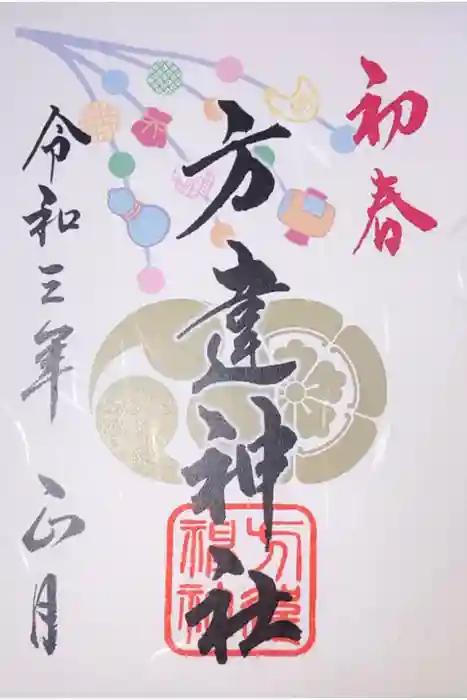 初春
方違神社
方違神社
令和三年 正月